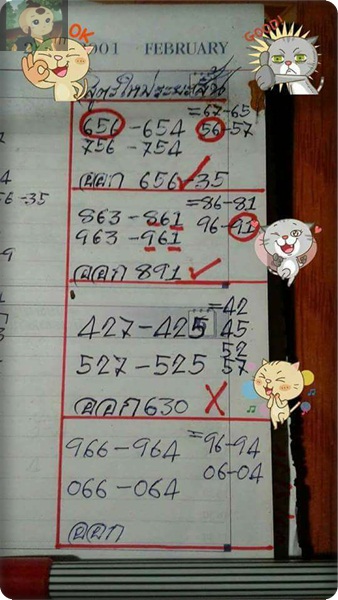 OK
GOOD!
001 FEBRUARY
สูตรใหม่ระยะสั้น
=67-65
656-654 56-57
756-754
ออก 656-35
=86-81
863-861 96-91
963-961
ออก 891
=42
427-425 45
52
527-525 57
ออก 630
966-964 =96-94
06-04
066-064
ออก
6-35